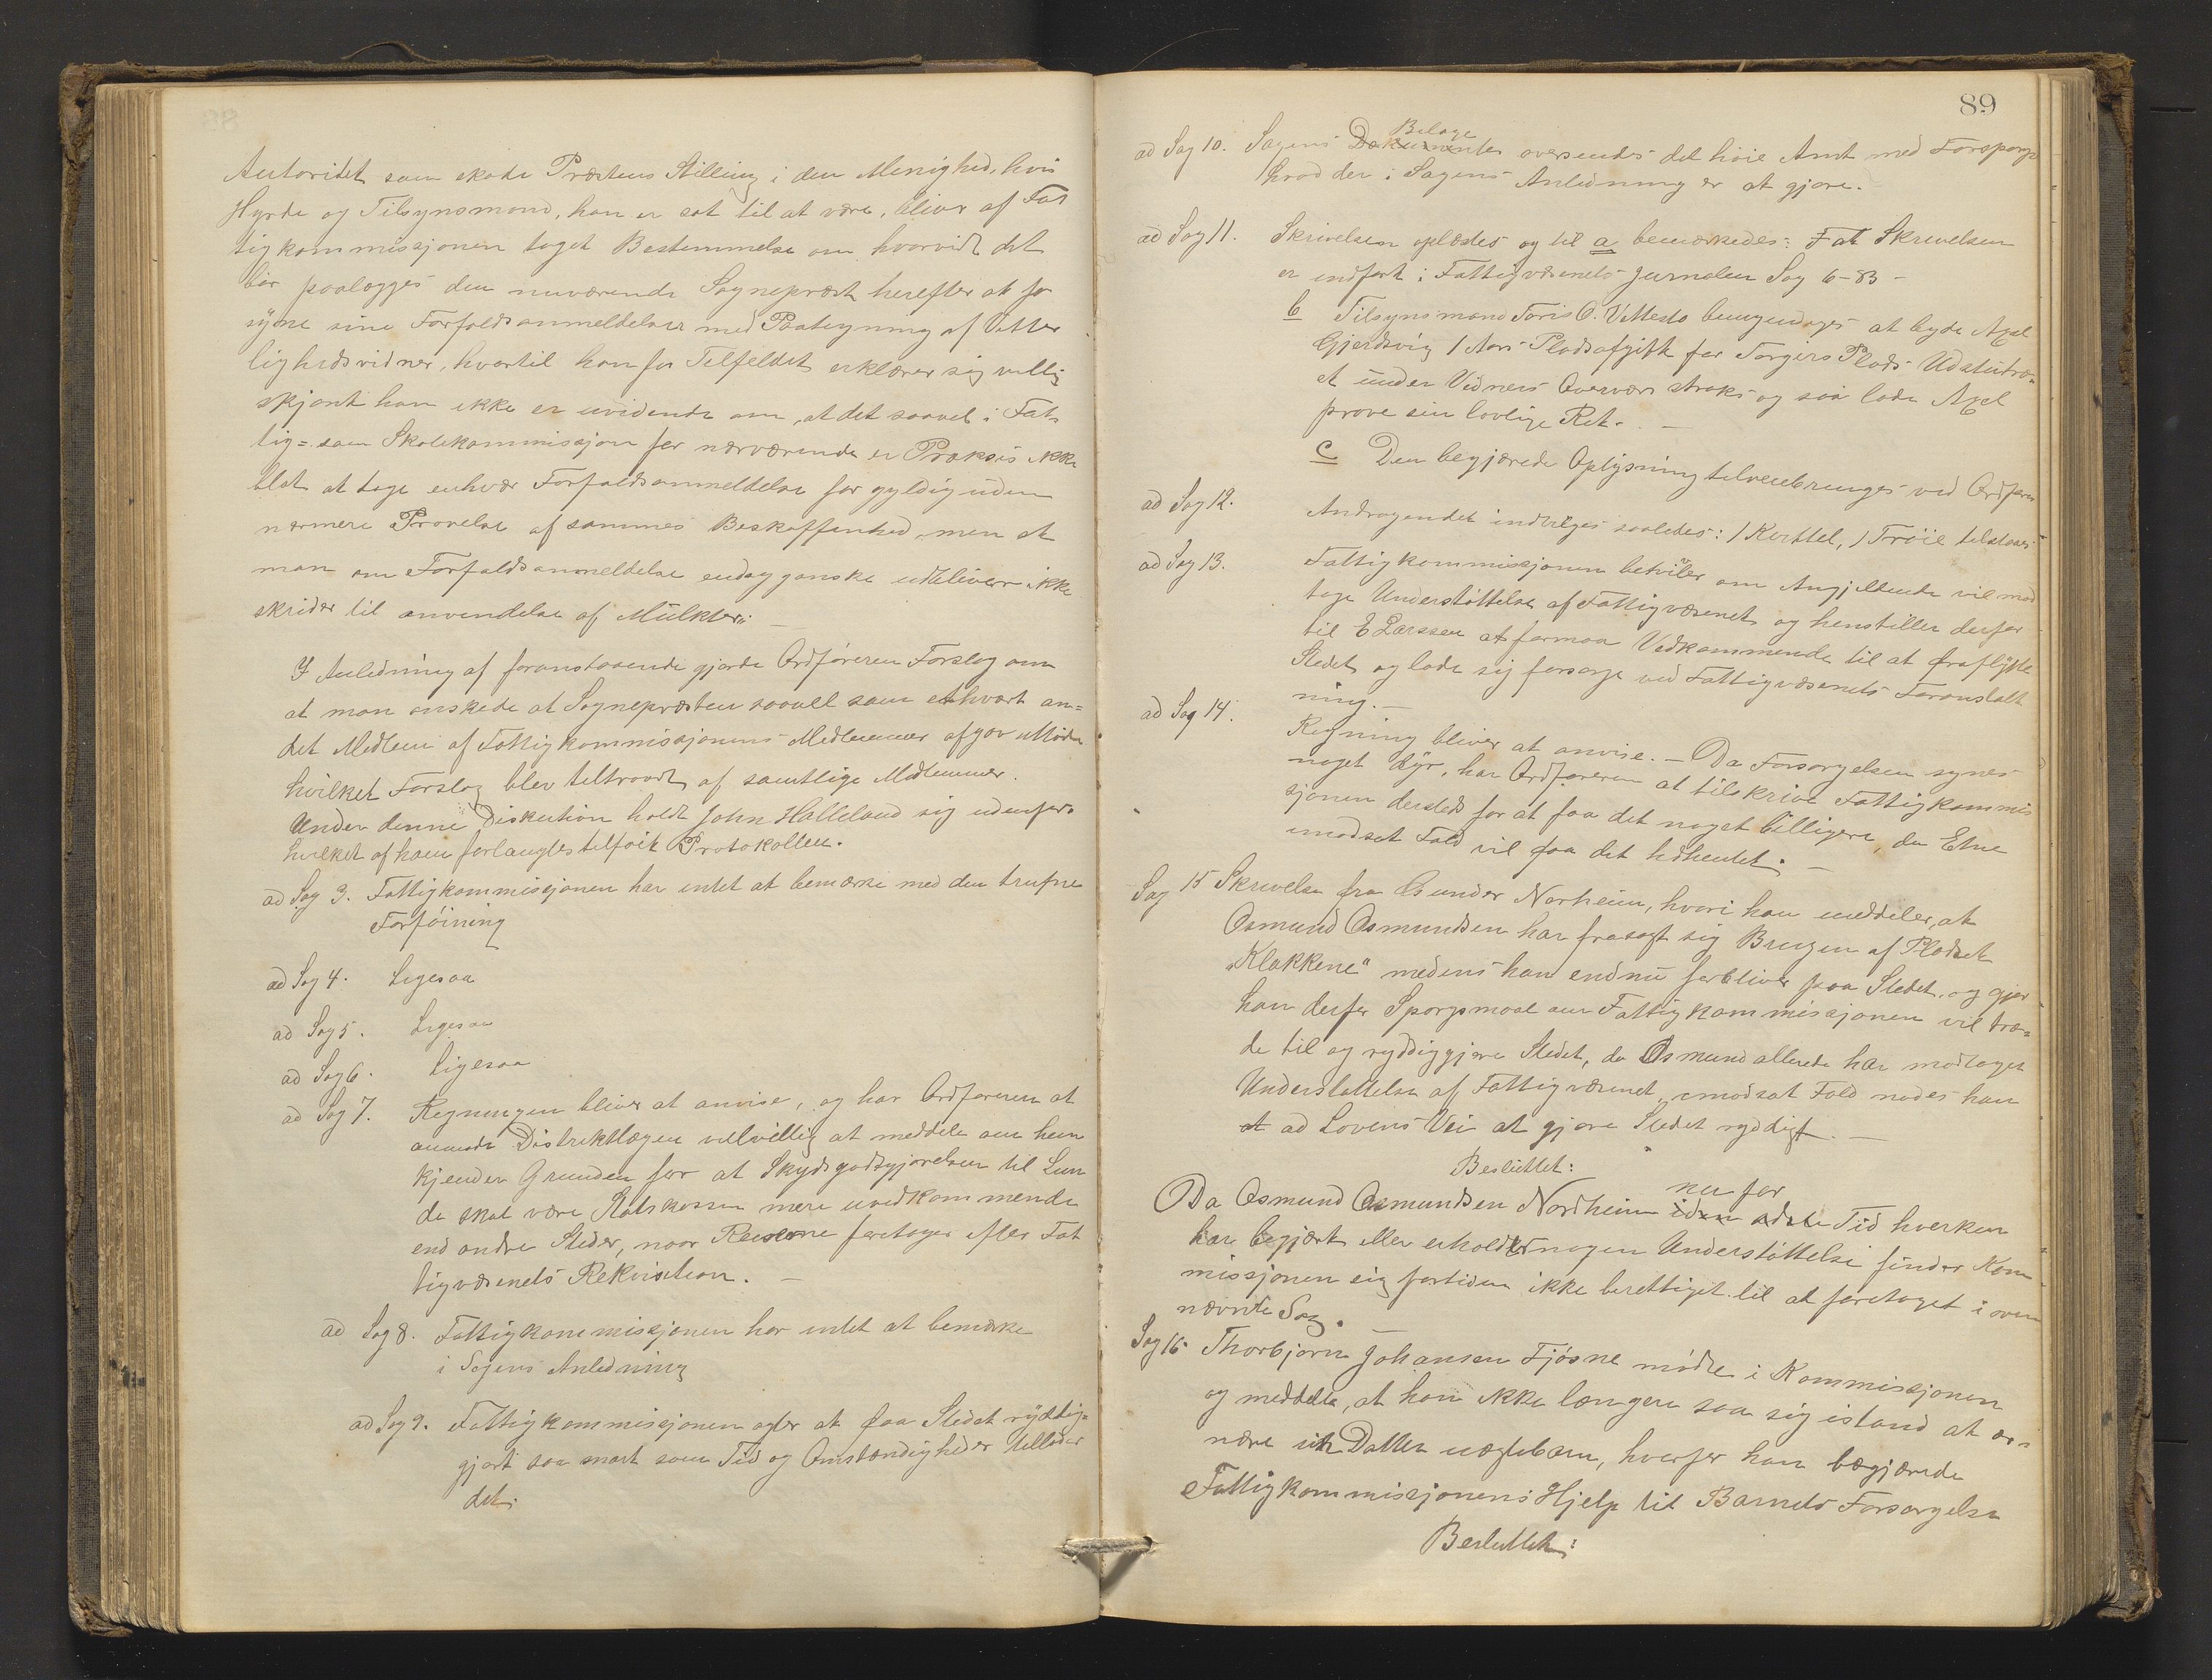 Autoritet som skade Præstens Stilling i den Menighed, hvis
Hyrde og Tilsynsmand, han er sat til at være, bliver af Fat
tigkommissjonen taget Bestemmelse om hvorvidt det
bør paalægges den nuværende Sogneprest herefter at for
syne sine Forfaldsanmeldelser med Paategning af Vitter
lighedsvidner, hvortil han for Tilfeldet erklærer sig villig
skjønt han ikke er uvidende om, at det saavel i Fat-
tig= som Skolekommissjon for nærværende er Praksis ikke
blot at tage enhver Forfaldsanmeldelse for gyldig uden
nærmere Prøvelse af sammes Beskaffenhed, men at
man om Forfaldsanmeldelse endog ganske udebliver ikke
skrider til anvendelse af Mulkter". —
I Anledning af foranstaaende gjorde Ordføreren Forslag om
at man ønskede at Sognepræsten saavel som ethvert an=
det Medlem af Fattigkommissjonens Medlemmer afgav Møde
hvilket Forslag blev tiltraadt af samtlige Medlemmer.
Under denne Diskution holdt John Halleland sig udenfor
hvilket af ham forlangtes tilføit Protokollen.
ad Sag 3. Fattigkommissjonen har intet at bemærke med den trufne
Forføining
ad Sag 4. Ligesaa
ad Sag 5. Ligesaa
ad Sag 6. Ligesaa
ad Sag 7. Regningen bliver at anvise, og har Ordføreren at
anmode Distriktlægen velvillig at meddele om han
kjender Grunden for at Skydsgodtgjørelsen til Lun
de skal være Statskassen mere uvedkommende
end andre Steder, naar Reiserne foretages efter Fat
tigvæsenets Rekvisition. —
ad Sag 8. Fattigkommissjonen har intet at bemærke
i Sagens Anledning
ad Sag 9. Fattigkommissjonen agter at faa Stedet ryddig=
gjort saa snart som Tid og Omstændigheder tillader
det.
89
Bilage
ad Sag 10. Sagens Dokumenter oversendes det høie Amt med Forspørgs
hvad der i Sagens Anledning er at gjøre.
ad Sag 11. Skrivelsen oplæstes og til a bemærkedes: F at Skrivelsen
er indført i Fattigvæsenets Jurnalen Sag 6-83 -
b Tilsynsmand Toris O. Vettesto bemyndiges at byde Axel
Gjerdsvig 1 Aars Pladsafgift for Torgers Plads Udstutræ-
et under Vidners Overvær straks og saa lade Axel
prøve sin lovlige Ret. —
c Den begjærede Oplysning tilveiebringes ved Ordføren
ad Sag 12. Andragendet indvilges saaledes: 1 Kvittel, 1 Trøie tilstaaes
ad Sag 13. Fattigkommissjonen betviler om Angjeldende vil mod
tage Understøttelse af Fattigvæsenet og henstiller derfor
til E Larssen at formaa Vedkommende til at fraflytte
Stedet og lade sig forsørge ved Fattigvæsenets Foranstalt
ning. —
ad Sag 14. Regning bliver at anvise. — Da Forsørgelsen synes
noget dyr, har Ordføreren at tilskrive Fattigkommis
sjonen dersteds for at faa det noget billigere, da Etne
imodsat Fald vil faa det hidhentet. —
Sag 15 Skrivelse fra Gunder Norheim, hvori han meddeler, at
Osmund Osmundsen har frasagt sig Brugen af Pladset
„Klakkene" medens han endnu forbliver paa Stedet, og gjør
han derfor Spørgsmaal om Fattigkommissjonen vil træ=
de til og ryddiggjøre Stedet, da Osmund allerede har modtaget
Understøttelse af Fattigvæsenet, imodsat Fald nødes han
at ad Lovens Vei at gjøre Stedet ryddigt. —
Besluttet:
nu for
Da Osmund Osmundsen Nordheim iden sidste Tid hverken
har begjært eller erholdt nogen Understøttelse finder Kom-
missjonen sig fortiden ikke berettiget til at foretaget i oven
nævnte Sag.
Sag 16. Thorbjørn Johansen Fjøsne mødte i Kommissjonen
og meddelte, at han ikke længere saa sig istand at er=
nære sin Datter uægtebarn, hvorfor han begjærede
Fattigkommissjonens Hjelp til Barnets Forsørgelse
Besluttet: